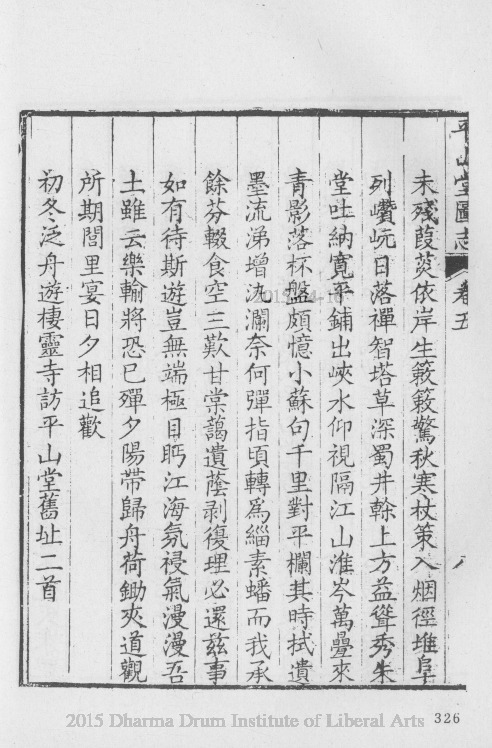 平山堂圖志 卷五 八
未殘葭菼依岸生簌簌驚秋寒杖策入烟徑堆阜
列巑岏日落禪智塔草深蜀井榦上方益聳秀朱
堂吐納寬平鋪出峽水仰視隔江山淮岑萬疊來
青影落杯盤頗憶小蘇句千里對平欄其時拭遺
墨流涕增汍瀾奈何彈指頃轉爲緇素蟠而我承
餘芬輟食空三歎甘棠蔼遺蔭剥復理必還兹事
如有待斯遊豈無端極目眄江海氛祲氣漫漫吾
土雖云樂輸將恐已殫夕陽帶歸舟荷鋤夾道觀
所期閭里宴日夕相追歡
初冬泛舟遊棲靈寺訪平山堂舊址二首
2015 Dharma Drum Institute of Liberal Arts 326